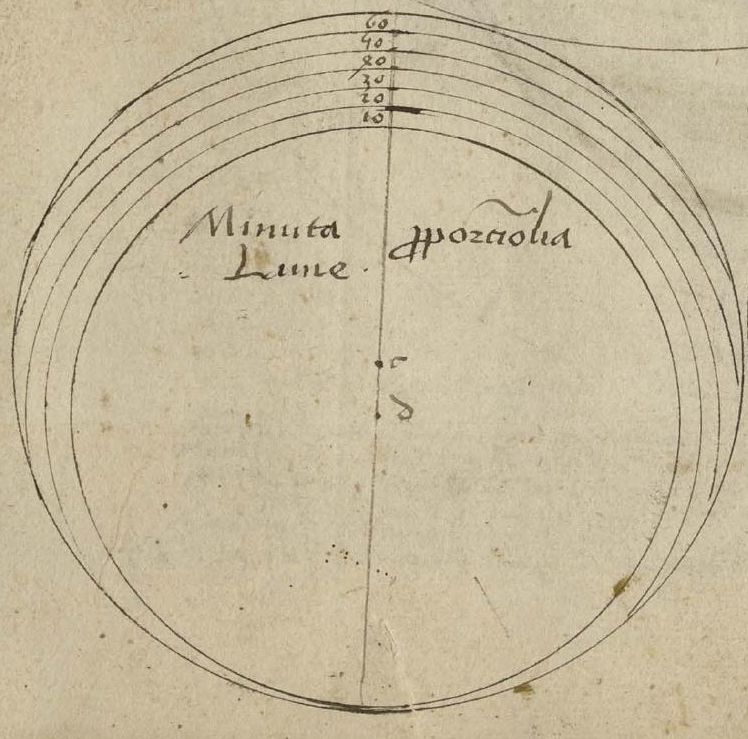 60
40
20
30
20
10
Minuta ꝓporcio͠lia
Lune.
c
d